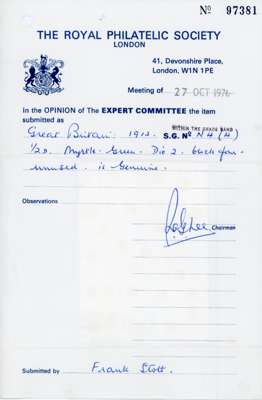 Nº 97381
THE ROYAL PHILATELIC SOCIETY
LONDON
41, Devonshire Place,
London, W1N 1PE
Meeting of 27 OCT 1976
In the OPINION of The EXPERT COMMITTEE the item
submitted as
WITHIN THE SHADE BAND
Great Britain 1912 S.G. Nº N4 (4)
½d. Myrtle-Green. Die 2. block four
unused. is Genuine.
Observations
Chairman
Submitted by Frank Stott.